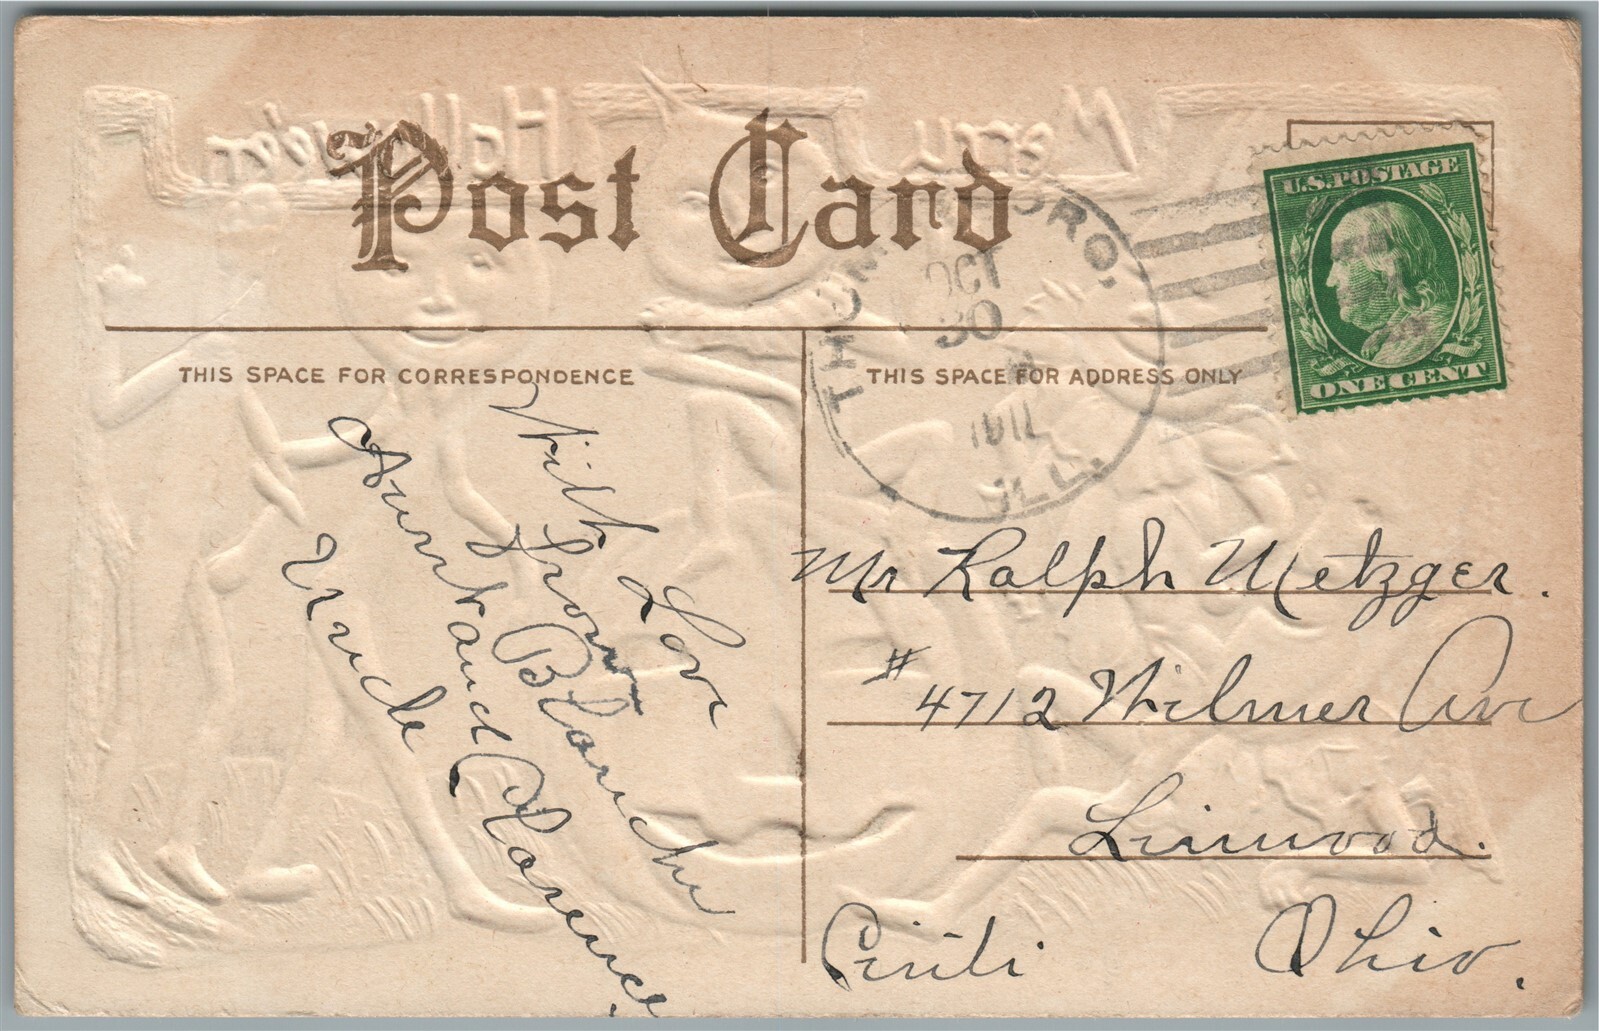 Post Card
THIS SPACE FOR CORRESPONDENCE
THIS SPACE FOR ADDRESS ONLY
U.S. POSTAGE
ONE CENT
OCT
30
1911
ILL.
Merry Hallowe'en
With Love
from Blanche
Aunt and Clarence.
Uncle
Mr Ralph Metzger.
# 4712 Wilmer Ave
Linwood.
Cinti Ohio.